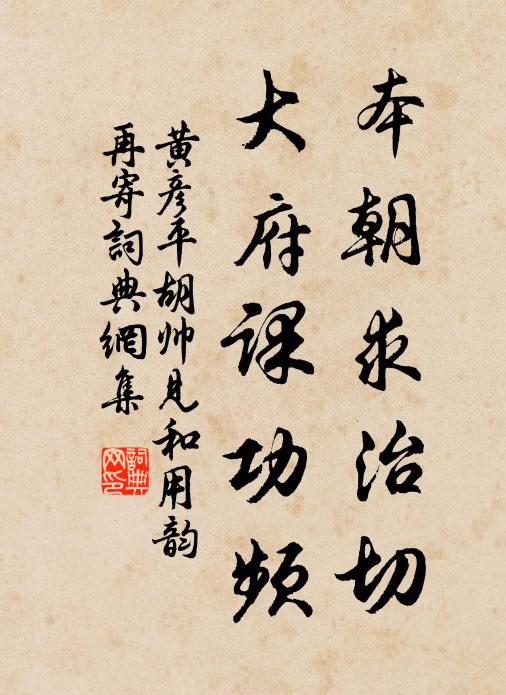 本朝求治切
大府课功频
黄彦平胡帅见和用韵
再寄詞典網集
詞典网印